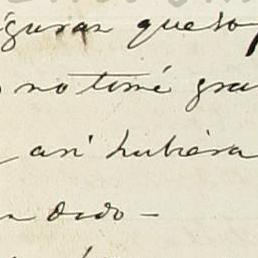 iguran que so
no tomé gra
asi hubiera
n dado —